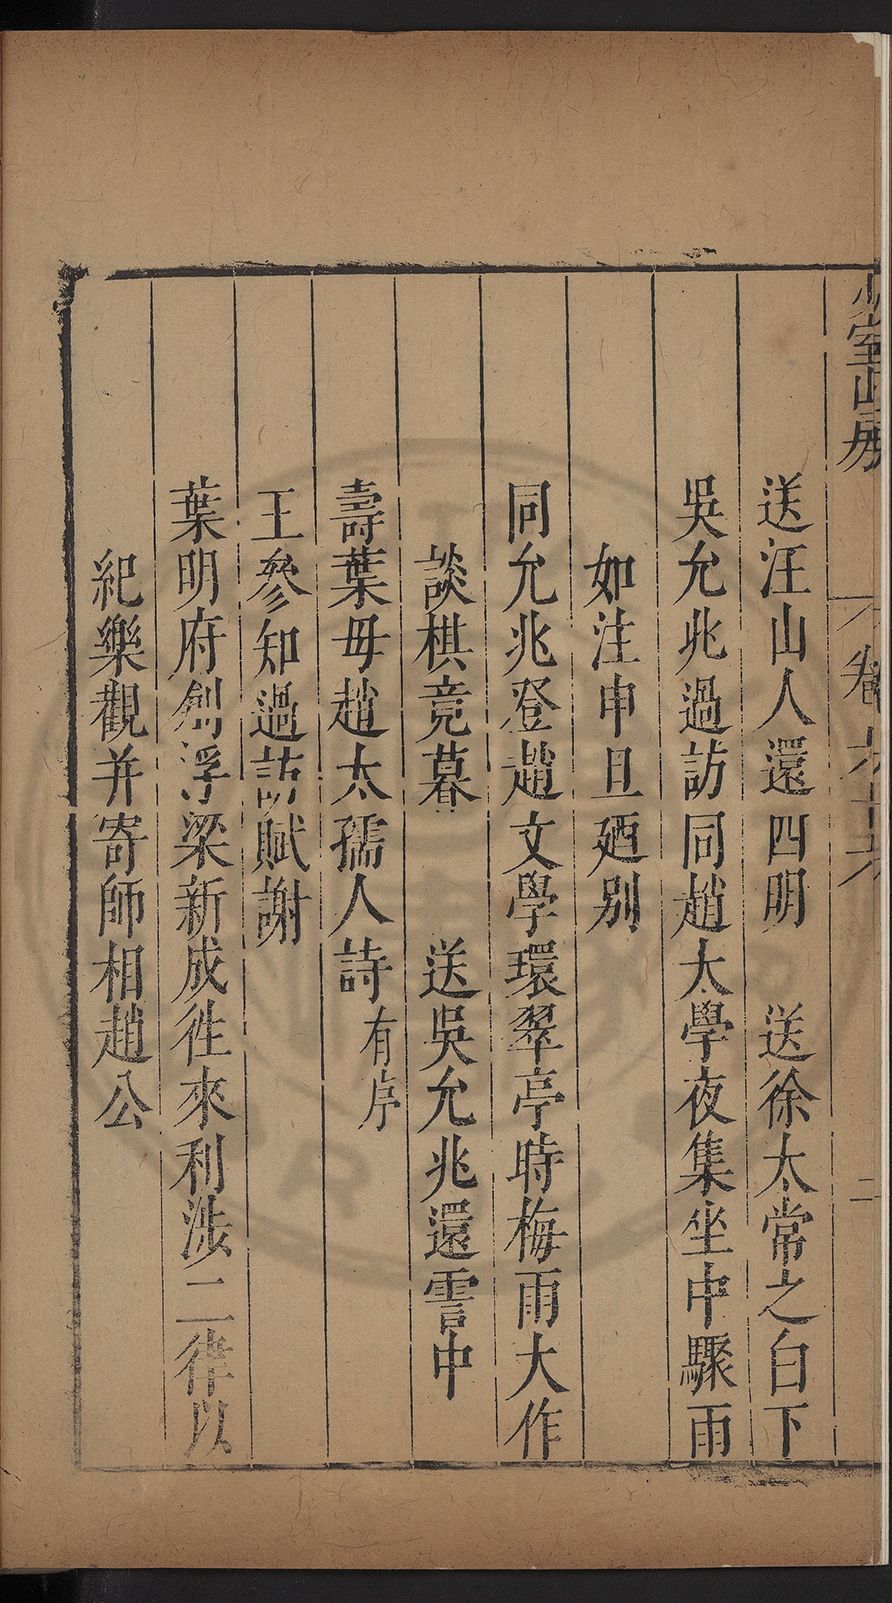 少室山房
卷六十六
二
送汪山人還四明　送徐太常之白下
吳允兆過訪同趙太學夜集坐中驟雨
如注申旦廼別
同允兆登趙文學環翠亭時梅雨大作
談棋竞暮　送吳允兆還霅中
壽葉毋趙太孺人詩有序
王參知過訪賦謝
葉明府創浮梁新成徃來利涉二律以
紀樂觀并寄師相趙公